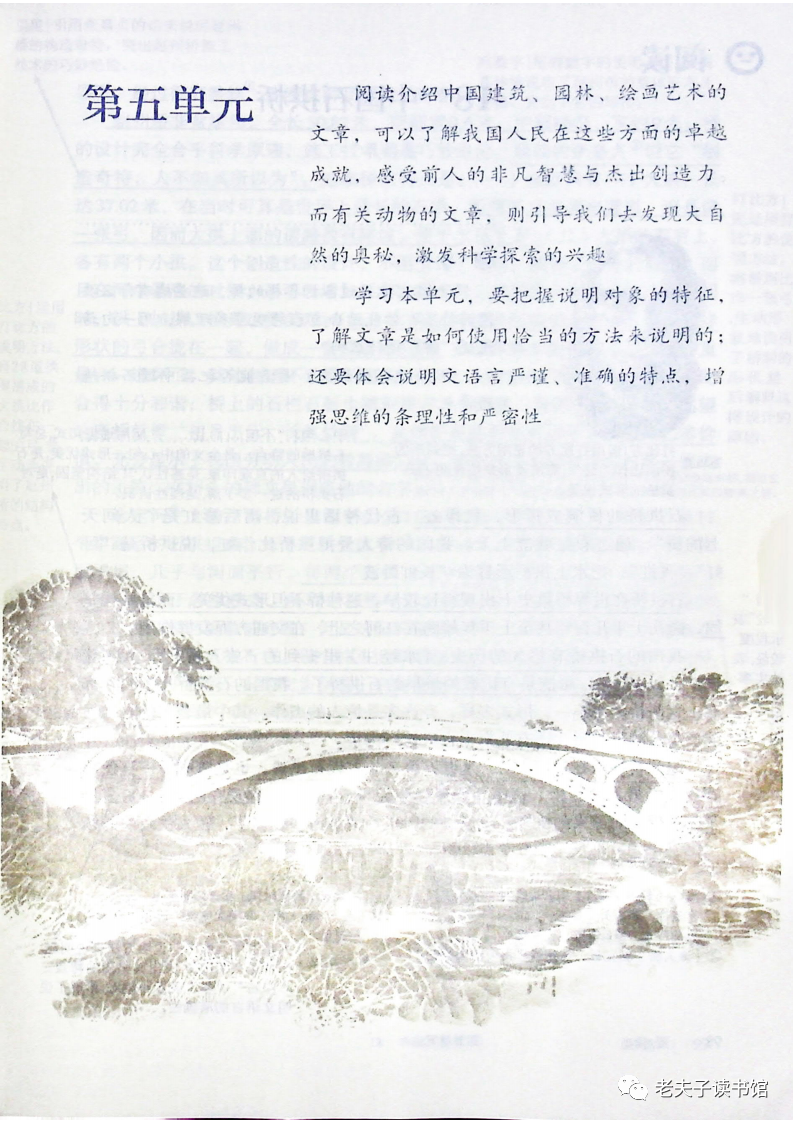 第五单元
阅读介绍中国建筑、园林、绘画艺术的
文章，可以了解我国人民在这些方面的卓越
成就，感受前人的非凡智慧与杰出创造力
而有关动物的文章，则引导我们去发现大自
然的奥秘，激发科学探索的兴趣
学习本单元，要把握说明对象的特征，
了解文章是如何使用恰当的方法来说明的；
还要体会说明文语言严谨、准确的特点，增
强思维的条理性和严密性
老夫子读书馆